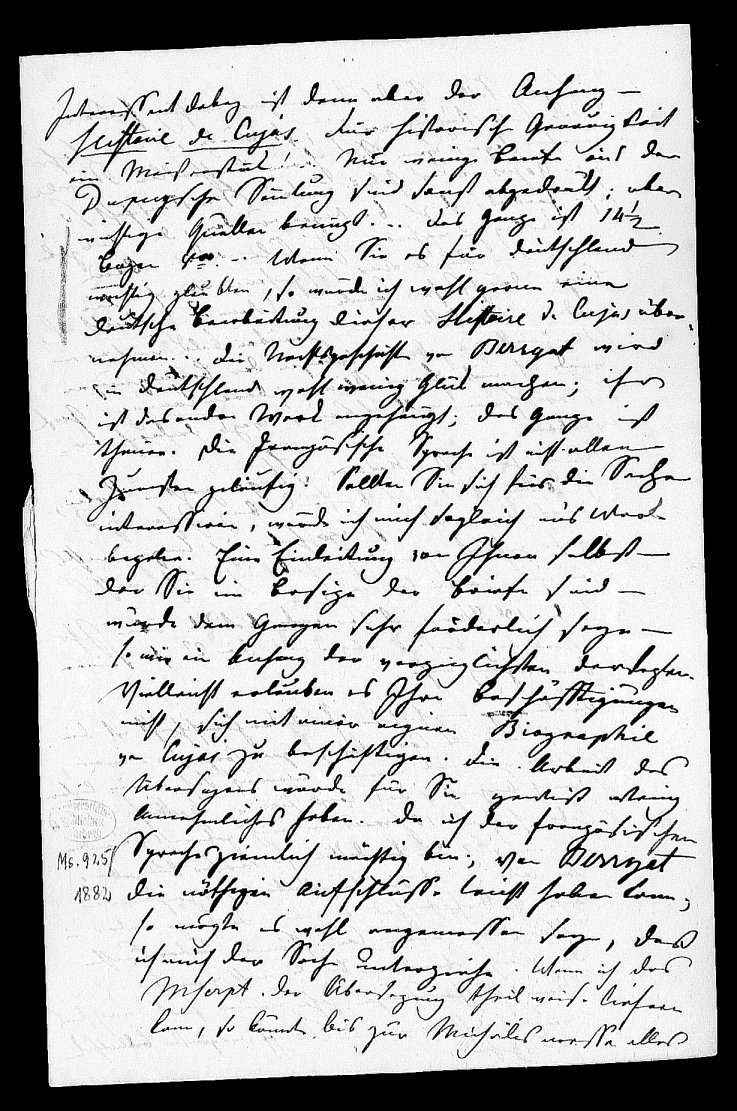 Interessent dabey ist denn aber der Anhang —
Histoire de Cujas. Für historische Genauigkeit
ein Meisterstück! .. Nur wenige Briefe aus der
Dupuyschen Samlung sind sonst abgedruckt; aber
wichtige Quellen benuzt. .. Das Ganze ist 14½
Bogen .. Wenn Sie es für Deutschland
wichtig glaubten, so würde ich wohl gerne eine
deutsche Bearbeitung dieser Histoire de Cujas über-
nehmen. .. Die Rechtsgeschichte von Berryat wird
in Deutschland wohl wenig Glück machen; ihr
ist das andere Werk angehängt; das Ganze ist
theuer. Die französische Sprache ist nicht allen
Juristen geläufig. Sollten Sie sich für die Sache
interessiren, würde ich mich sogleich ans Werk
begeben. Eine Einleitung von Ihnen selbst —
der Sie im Besize der Briefe sind —
würde dem Ganzen sehr förderlich seyn —
so wie ein Anhang der vorzüglichsten derselben.
Vielleicht erlauben es Ihre Beschäftigungen
nicht, sich mit einer eignen Biographie
von Cujas zu beschäftigen. Die Arbeit des
Übersezens würde für Sie gewiß wenig
Annehmliches haben. Da ich der französischen
Sprache ziemlich mächtig bin, von Berryat
die nöthigen Aufschlüsse leicht haben kann,
so mögte es wohl angemessen seyn, daß
ich mich der Sache unterziehe. Wenn ich das
Mscrpt. der Übersezung theilweise liefern
kann, so könnte bis zur Michälis messe alles
Ms. 925/
1882